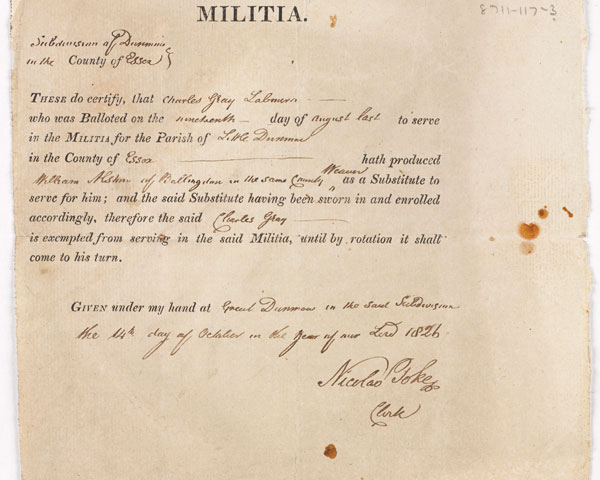 MILITIA.
8711-117-3
Subdivision of Dunmow
in the County of Essex
THESE do certify, that Charles Gray Labourer
who was Balloted on the nineteenth day of august last to serve
in the MILITIA for the Parish of Little Dunmow
in the County of Essex hath produced
William of Ballingdon in the same County Weaver as a Substitute to
serve for him; and the said Substitute having been sworn in and enrolled
accordingly, therefore the said Charles Gray
is exempted from serving in the said Militia, until by rotation it shall
come to his turn.
GIVEN under my hand at Great Dunmow in the said Subdivision
the 14th day of October in the Year of our Lord 1826
Nicolas
Clerk